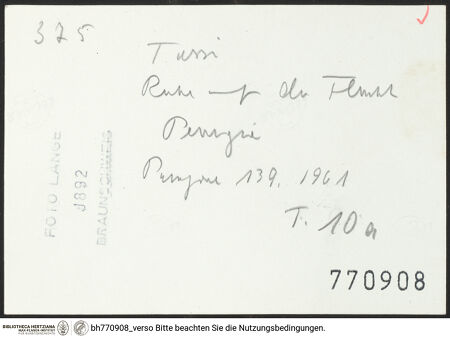 375
Tassi
Ruhe auf der Flucht
Perugia
Paragone 139, 1961
T. 10a
FOTO LANGE
J892
BRAUNSCHWEIG
770908
BIBLIOTHECA HERTZIANA
MAX-PLANCK-INSTITUT
bh770908_verso Bitte beachten Sie die Nutzungsbedingungen.